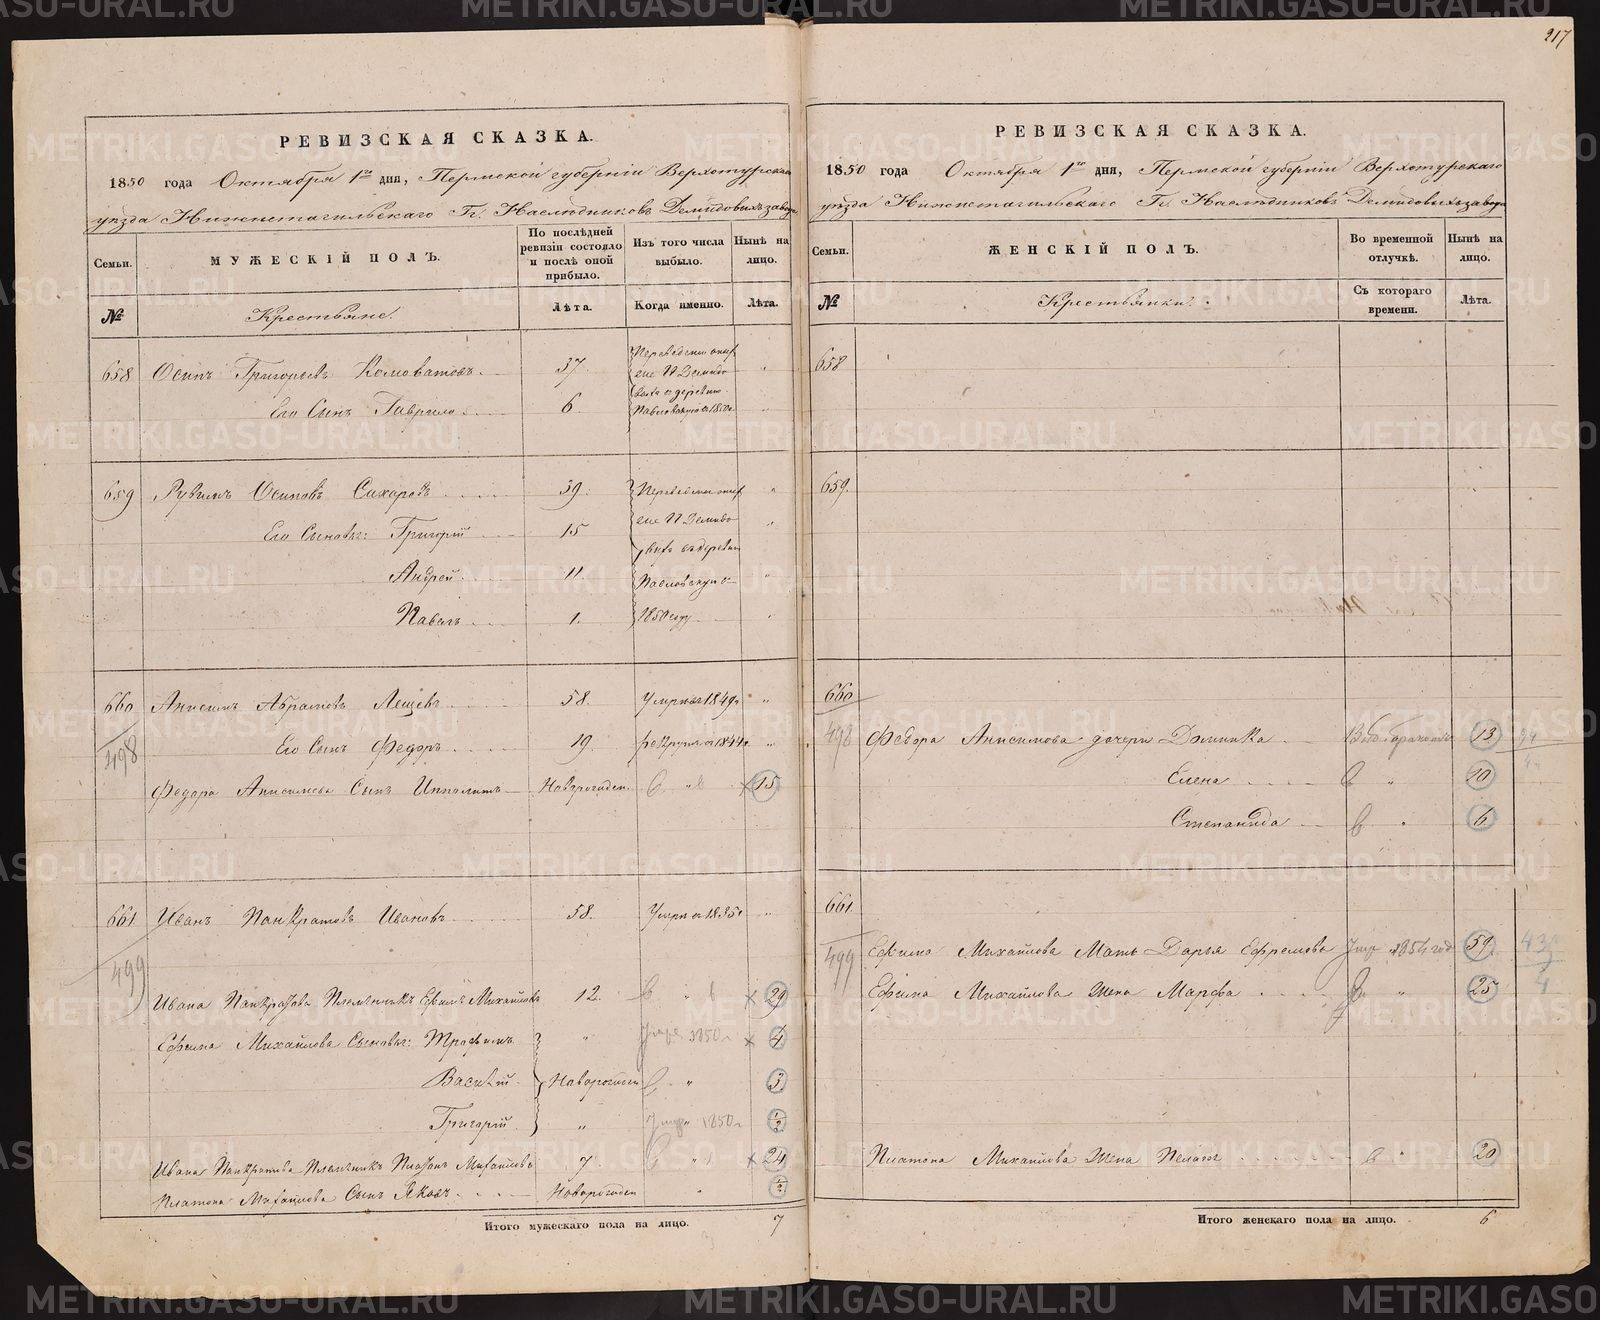 217
РЕВИЗСКАЯ СКАЗКА.
1850 года Октября 1го дня, Пермской губерніи Верхотурскаго
уѣзда Нижнетагильскаго Гг. Наслѣдниковъ Демидовыхъ завода
Семьи.
МУЖЕСКІЙ ПОЛЪ.
По послѣдней ревизіи состояло и послѣ оной прибыло.
Изъ того числа выбыло.
Нынѣ на лицо.
№
Крестьяне.
Лѣта.
Когда именно.
Лѣта.
658 Осипъ Григорьевъ 37. Переведены
Его Сынъ Гаврило 6.
659 Рувимъ Осиповъ Сихаревъ 39. Переведены
Его Сыновья: Григорій 15
Андрей 11.
Павелъ 1. 1850 году
660 Анисимъ Абрамовъ Лещевъ 58. Умри въ 1849 „
498 Его Сынъ Федоръ 19. рекрута въ 1844 „
Федора Анисимова Сынъ Ипполитъ Новорожден. 15
661 Иванъ Панкратовъ Ивановъ 58. Умри въ 1835 „
499
Ивана Панкратова Племянникъ Ефимъ Михайловъ 12. 29
Ефима Михайлова Сыновья: Трофимъ „ 1850 4
Василій Новорожден „ 3
Григорій „ 1850 ½
Ивана Панкратова Племянникъ Платонъ Михайловъ 7 24
Платона Михайлова Сынъ Яковъ Новорожден „ ½
Итого мужескаго пола на лицо. 7
РЕВИЗСКАЯ СКАЗКА.
1850 года Октября 1го дня, Пермской губерніи Верхотурскаго
уѣзда Нижнетагильскаго Гг. Наслѣдниковъ Демидовыхъ завода
Семьи.
ЖЕНСКІЙ ПОЛЪ.
Во временной отлучкѣ.
Нынѣ на лицо.
№
Крестьянки.
Съ котораго времени.
Лѣта.
658
659.
660
498 Федора Анисимова дочери Домника 13
Елена „ 10
Степанида 6
661
499 Ефима Михайлова Мать Дарья Ефремова 1854 год 59.
Ефима Михайлова Жена Марфа „ 25
Платона Михайлова Жена Пелагея 20
Итого женскаго пола на лицо. 6
METRIKI.GASO-URAL.RU